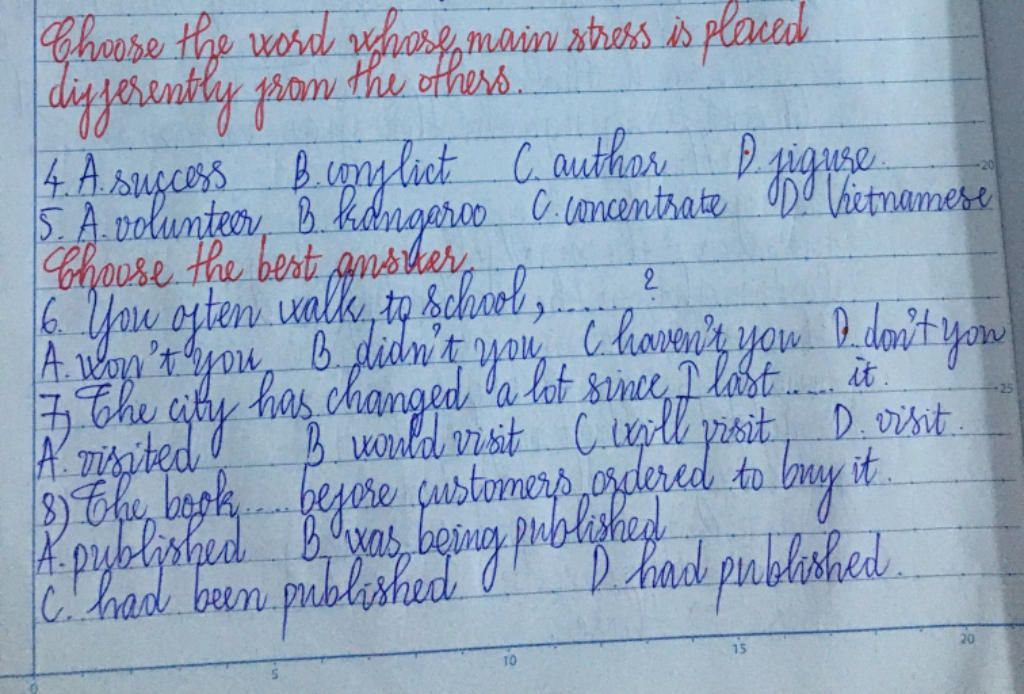 Choose the word whose main stress is placed
differently from the others.
4. A. success B. conflict C. author D. figure.
5. A. volunteer B. kangaroo C. concentrate D. Vietnamese
Choose the best answer.
6. You often walk to school, ...... ?
A. won't you B. didn't you C. haven't you D. don't you
7) The city has changed a lot since I last ..... it.
A. visited B would visit C will visit D. visit.
8) The book .... before customers ordered to buy it.
A. published B. was being published
C. had been published D. had published.
20
25
0 5 10 15 20